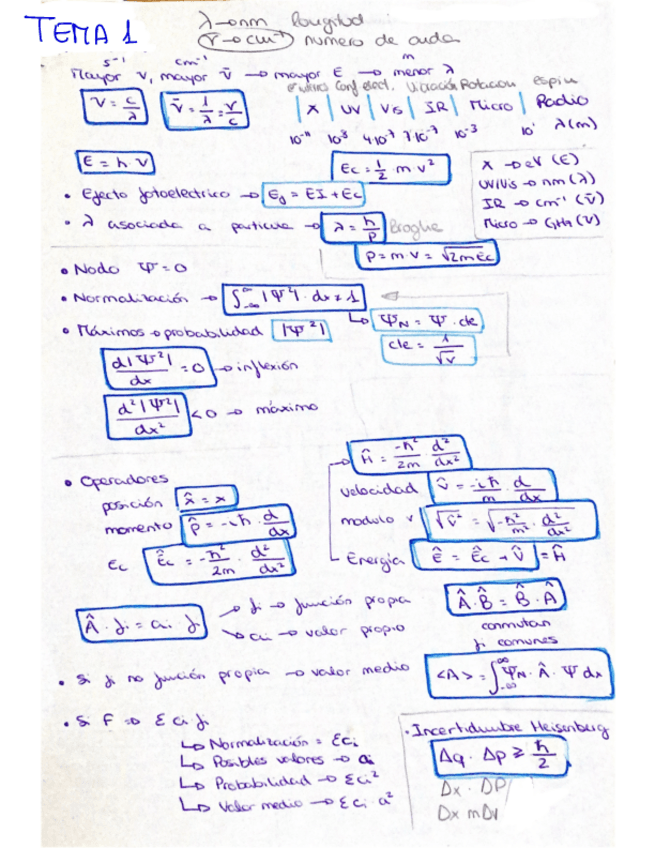 TEMA 1
λ→nm Longitud
ν̄→cm⁻¹ numero de onda
s⁻¹ cm⁻¹ m
Mayor ν, mayor ν̄ → mayor E → menor λ
ν = c/λ ν̄ = 1/λ = ν/c
Vibración Rotacion espin
| X | UV | Vis | IR | Micro | Radio
10⁻¹¹ 10⁻⁸ 4·10⁻⁷ 7·10⁻⁷ 10⁻³ 10¹ λ(m)
E = h·ν Ec = 1/2 · m·v²
X → eV (E)
UV/Vis → nm (λ)
IR → cm⁻¹ (ν̄)
Micro → GHz (ν)
• Efecto fotoelectrico → Eg = EI + Ec
• λ asociada a particula → λ = h/p Broglie
p = m·v = √2mEc
• Nodo Ψ=0
• Normalización → ∫_-∞^∞ |Ψ²|·dx = 1
↳ Ψ_N = Ψ·cte
cte = 1/√v
• Máximos → probabilidad |Ψ²|
d|Ψ²|/dx = 0 → inflexión
d²|Ψ²|/dx² < 0 → máximo
Ĥ = -ħ²/2m · d²/dx²
• Operadores
posición x̂ = x
velocidad v̂ = -iħ/m · d/dx
momento p̂ = -iħ · d/dx
modulo v √v̂² = √-ħ²/m² · d²/dx²
Ec Êc = -ħ²/2m · d²/dx²
Energía ê = Êc + V̂ = Ĥ
Â·fi = ai·f
→ fi → función propia
→ ai → valor propio
Â·B̂ = B̂·Â
conmutan
fi comunes
• Si f no función propia → valor medio <A> = ∫_-∞^∞ Ψ_N·Â·Ψ dx
• Si F ⇒ Σ ci fi
↳ Normalización = Σci
↳ Posibles valores → ai
↳ Probabilidad → Σci²
↳ Valor medio → Σci·a²
• Incertidumbre Heisenberg
Δq · Δp ≥ ħ/2
Δx · ΔP
Δx mΔv